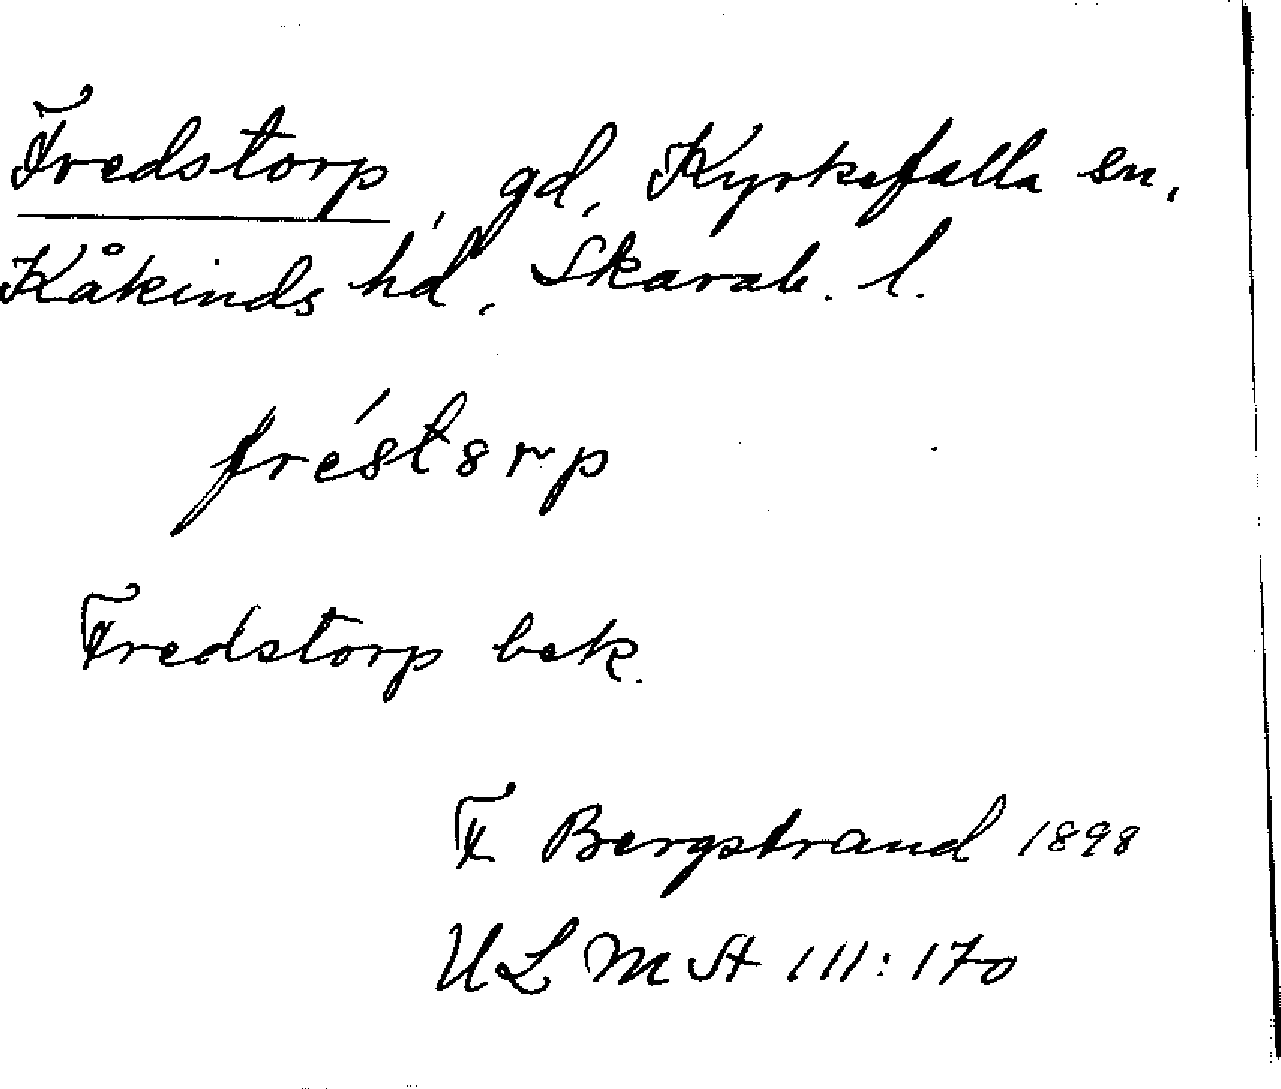 Fredstorp, gd, Kyrkefalla sn,
Kåkinds hd, Skarab. l.
fréstorp
Fredstorp bek.
F Bergstrand 1898
ULMA 111:170